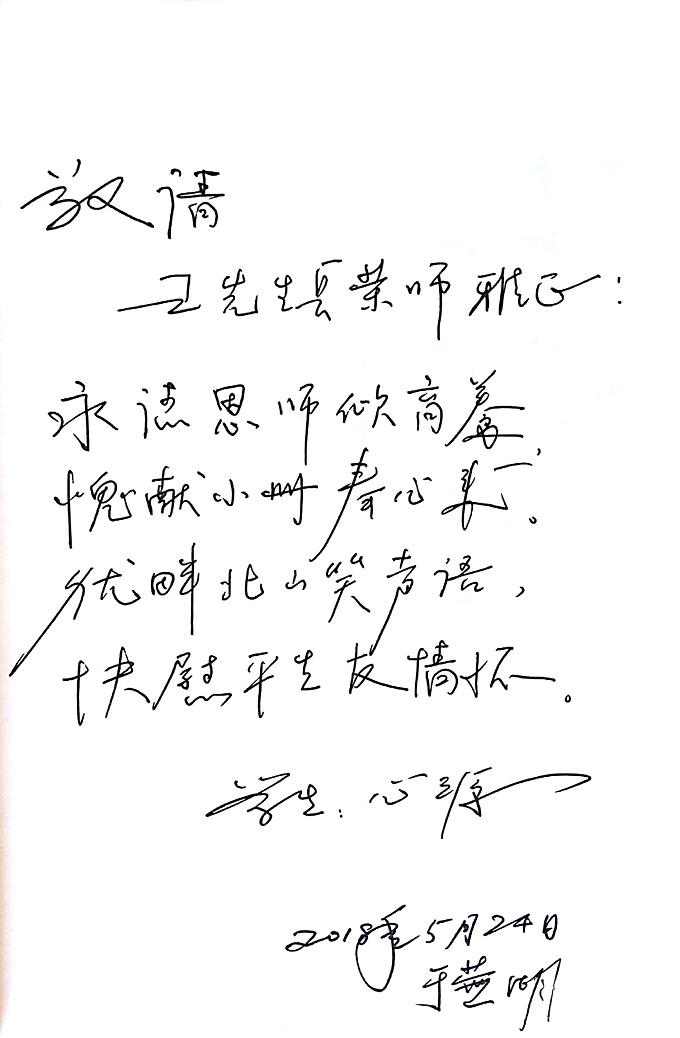 敬请
卫先生长荣师雅正：
永志恩师欣高，
愧献小册奉心来。
犹畔北山笑声语，
快慰平生友情怀。
学生：心源
2018年5月24日
于芜湖